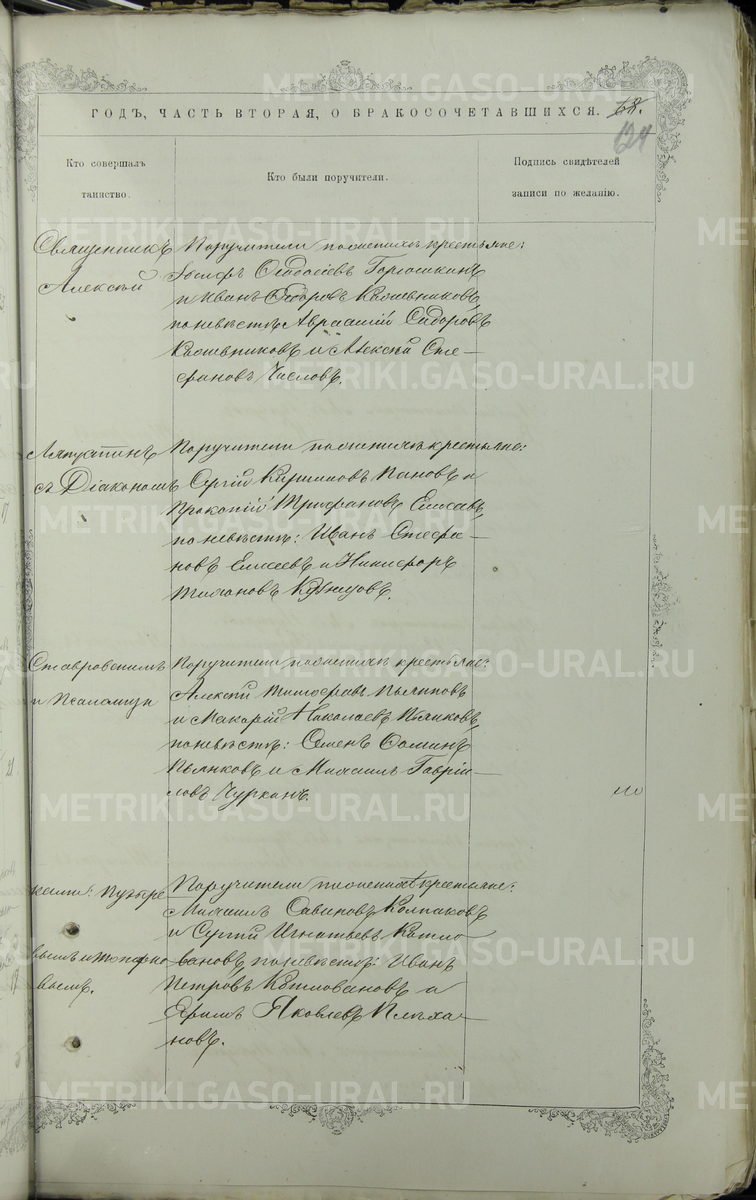 METRIKI.GASO-URAL.RU
ГОДЪ, ЧАСТЬ ВТОРАЯ, О БРАКОСОЧЕТАВШИХСЯ.
124
Кто совершалъ
таинство.
Кто были поручители.
Подпись свидѣтелей
записи по желанію.
Священникъ
Алексѣй
Поручители по женихѣ крестьяне:
Іосифъ Ѳеодосіевъ Горошкинъ
и Иванъ Ѳедоровъ
по невѣстѣ: Авраамій Сидоровъ
и Алексѣй Сте-
фановъ Числовъ.
съ Діакономъ
Поручители по женихѣ крестьяне:
Сергій Пановъ и
Прокопій Трифановъ
по невѣстѣ: Иванъ Стефа-
новъ Елисеевъ и Никифоръ
Кузнецовъ.
Ставровскимъ
и Псаломщи
Поручители по женихѣ крестьяне:
Алексѣй Тимофеевъ
и Макарій Николаевъ Пьянковъ,
по невѣстѣ: Семенъ Ѳоминъ
Пьянковъ и Михаилъ Гаврій-
ловъ Чурканъ.
ками: Пузыре
вымъ и
вымъ.
Поручители по женихѣ крестьяне:
Михаилъ Савиновъ Колпаковъ
и Сергій Игнатьевъ Котло
вановъ, по невѣстѣ: Иванъ
Петровъ Котловановъ и
Ефимъ Яковлевъ Плеха-
новъ.